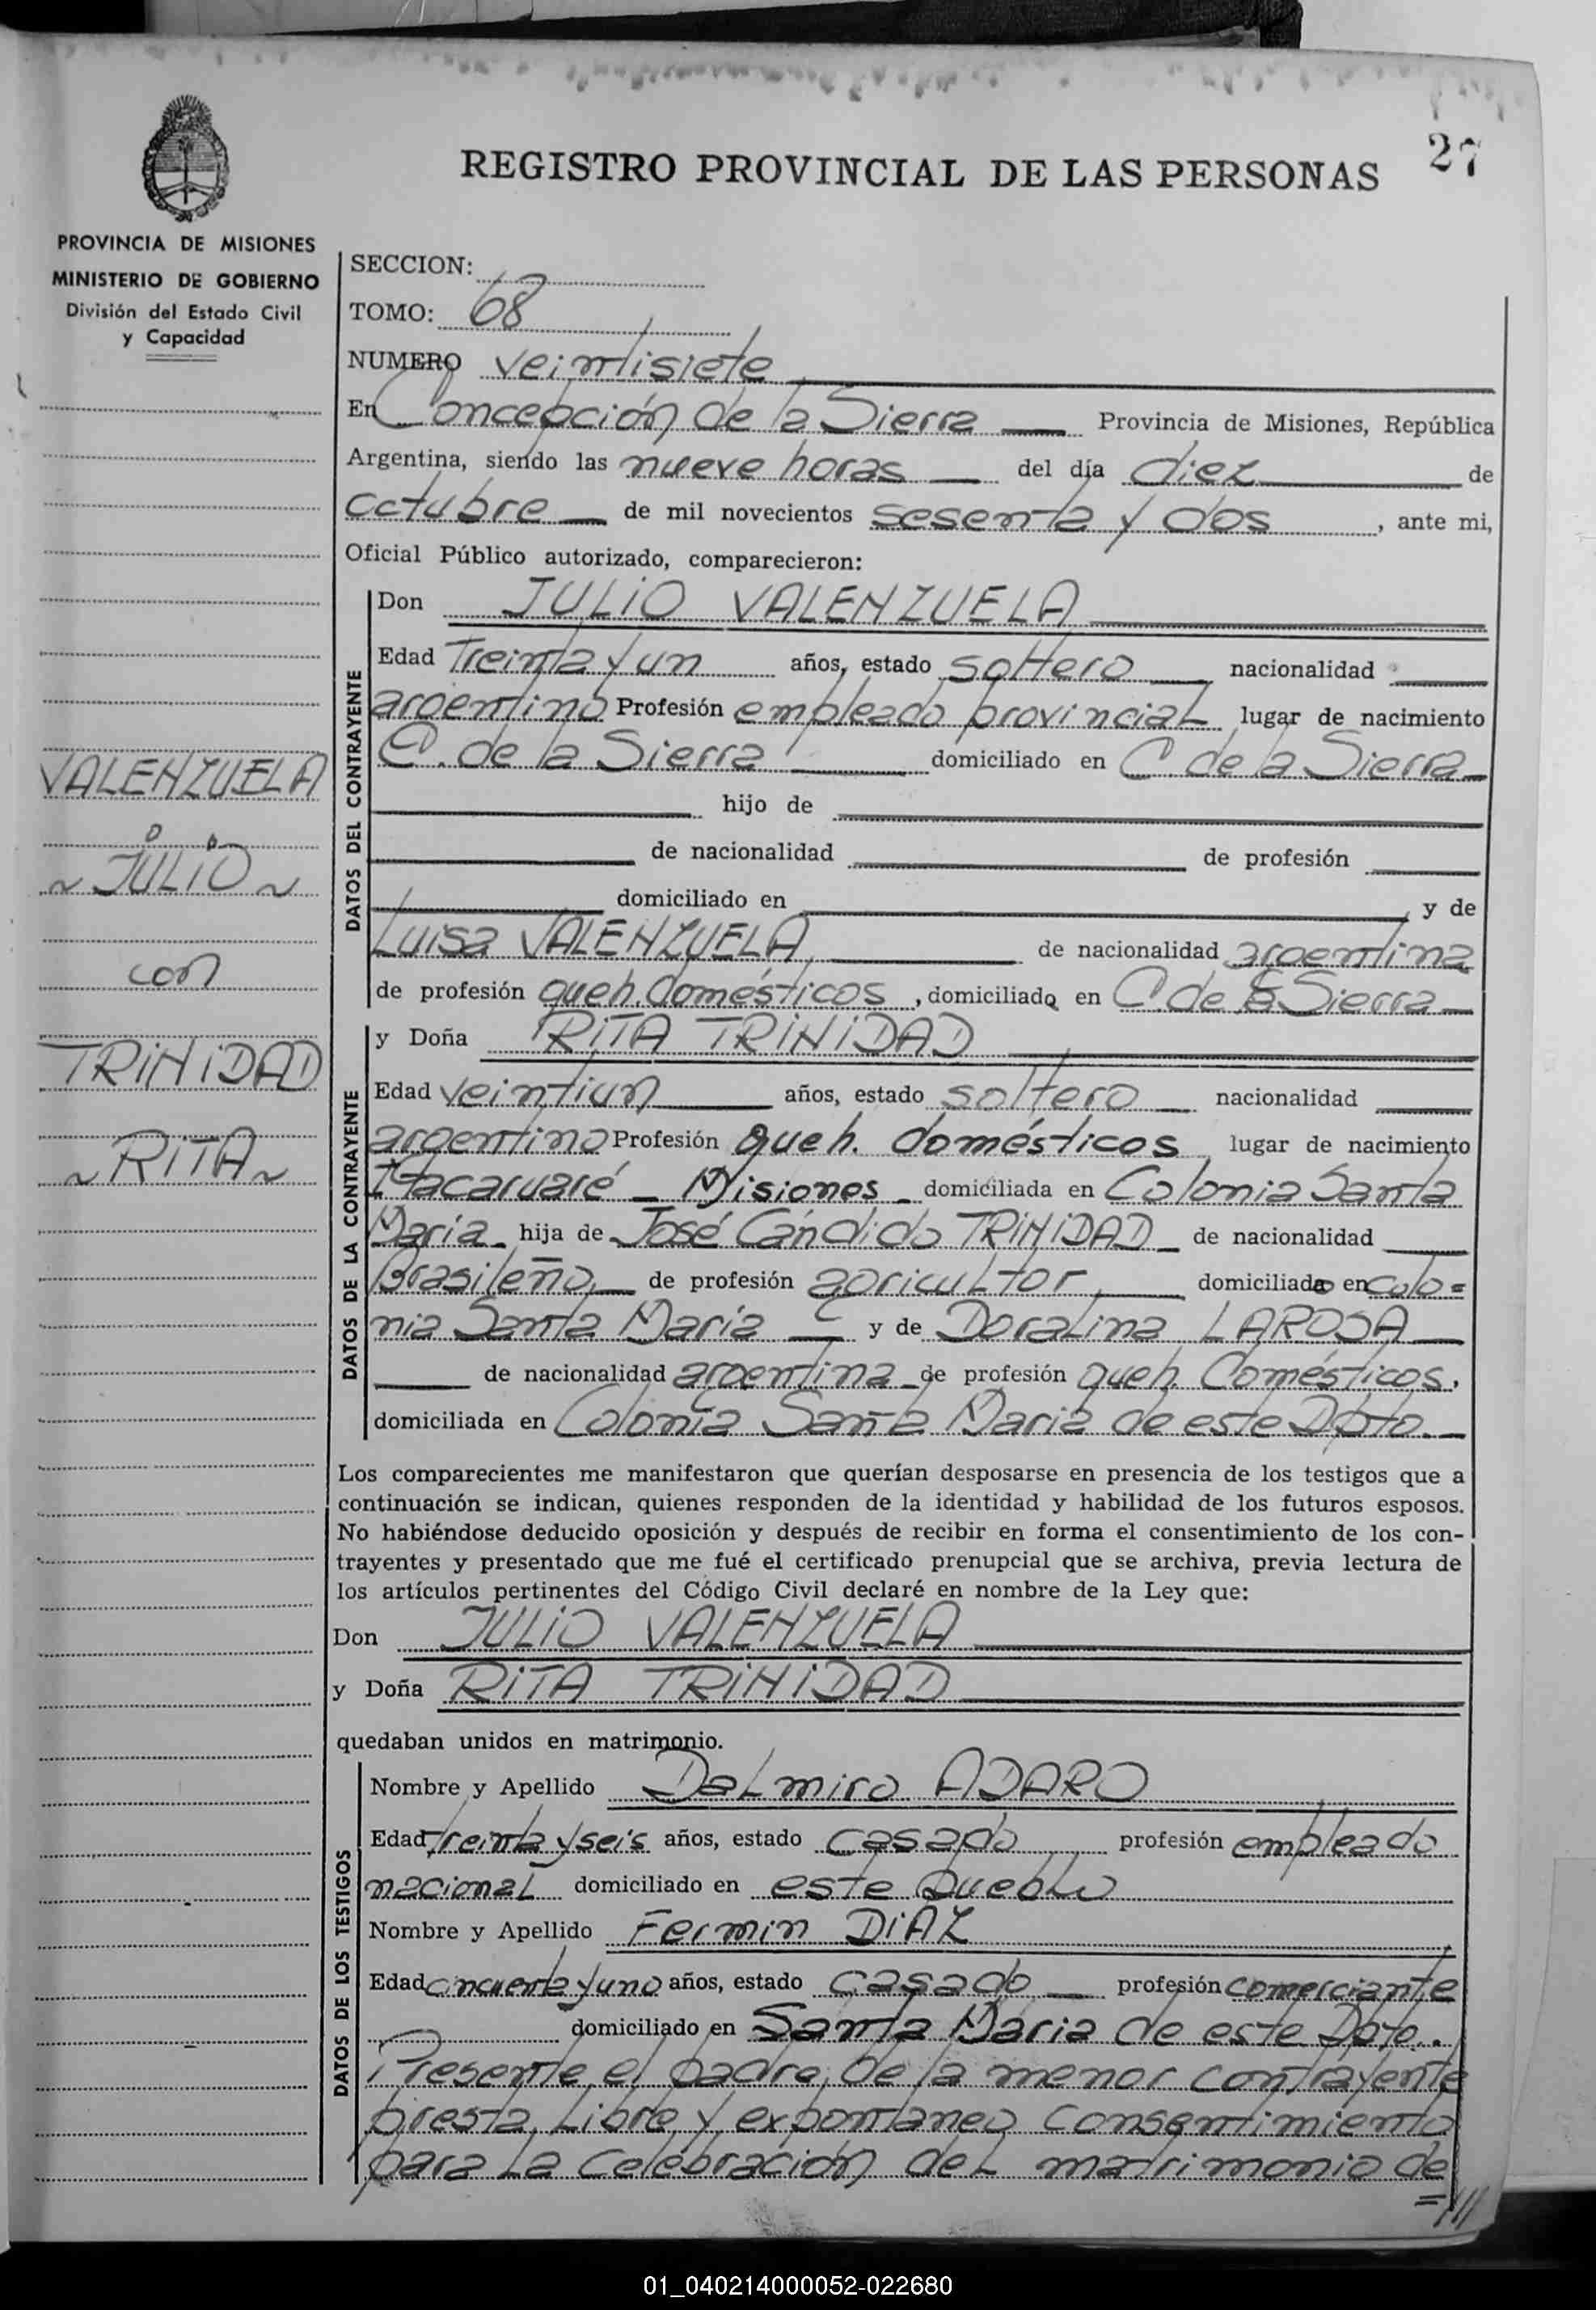 27
REGISTRO PROVINCIAL DE LAS PERSONAS
PROVINCIA DE MISIONES
MINISTERIO DE GOBIERNO
División del Estado Civil
y Capacidad
VALENZUELA
~ JULIO ~
con
TRINIDAD
~ RITA ~
SECCION:
TOMO: 68
NUMERO veintisiete
En Concepción de la Sierra Provincia de Misiones, República
Argentina, siendo las nueve horas del día diez de
octubre de mil novecientos sesenta y dos, ante mi,
Oficial Público autorizado, comparecieron:
DATOS DEL CONTRAYENTE
Don JULIO VALENZUELA
Edad Treinta y un años, estado soltero nacionalidad
argentino Profesión empleado provincial lugar de nacimiento
C. de la Sierra domiciliado en C. de la Sierra
hijo de
de nacionalidad de profesión
domiciliado en y de
Luisa VALENZUELA de nacionalidad argentina
de profesión queh. domésticos, domiciliada en C. de la Sierra
DATOS DE LA CONTRAYENTE
y Doña RITA TRINIDAD
Edad veintiun años, estado soltero nacionalidad
argentino Profesión queh. domésticos lugar de nacimiento
Itacaruaré - Misiones domiciliada en Colonia Santa
María hija de José Cándido TRINIDAD de nacionalidad
Brasileño de profesión agricultor domiciliado en Colo=
nia Santa María y de Doralina LAROSA
de nacionalidad argentina de profesión queh. Domésticos,
domiciliada en Colonia Santa Maria de este Dpto.
Los comparecientes me manifestaron que querían desposarse en presencia de los testigos que a
continuación se indican, quienes responden de la identidad y habilidad de los futuros esposos.
No habiéndose deducido oposición y después de recibir en forma el consentimiento de los con-
trayentes y presentado que me fué el certificado prenupcial que se archiva, previa lectura de
los artículos pertinentes del Código Civil declaré en nombre de la Ley que:
Don JULIO VALENZUELA
y Doña RITA TRINIDAD
quedaban unidos en matrimonio.
DATOS DE LOS TESTIGOS
Nombre y Apellido Dalmiro ADARO
Edad treinta y seis años, estado casado profesión empleado
nacional domiciliado en este Pueblo
Nombre y Apellido Fermin DIAZ
Edad cincuenta y uno años, estado casado profesión comerciante
domiciliado en Santa Maria de este Dpto..
Presente el padre de la menor contrayente
presta libre y expontaneo consentimiento
para la celebración del matrimonio de
=///
01_040214000052-022680